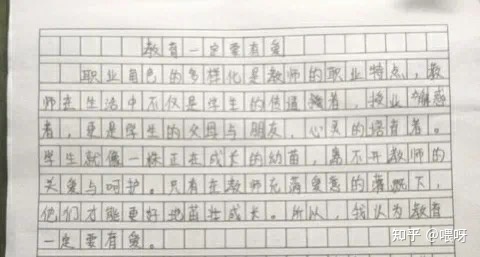 教育一定要有爱
职业角色的多样化是教师的职业特点，教
师在生活中不仅是学生的传道者，授业解惑
者，更是学生的父母与朋友，心灵的培育者。
学生就像一株正在成长的幼苗，离不开教师的
关爱与呵护。只有在教师充满爱意的灌溉下，
他们才能更好地茁壮成长。所以，我认为教育
一定要有爱。
知乎 @喂呀